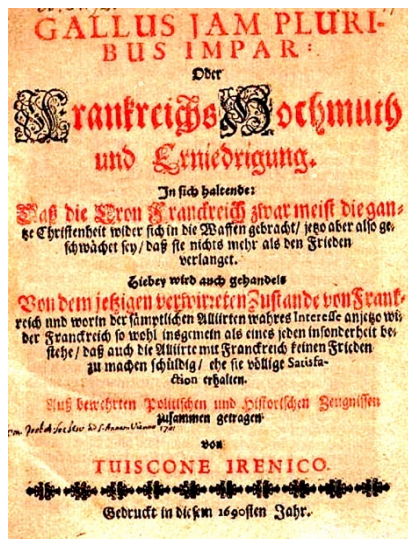 GALLUS JAM PLURI-
BUS IMPAR:
Oder
Frankreichs Hochmuth
und Erniedrigung.
In sich haltende:
Daß die Cron Franckreich zwar meist die gan-
tze Christenheit wider sich in die Waffen gebracht/ jetzo aber also ge-
schwächet sey/ daß sie nichts mehr als den Frieden
verlanget.
Hiebey wird auch gehandelt
Von dem jetzigen verwirreten Zustande von Frank-
reich und worin der sämptlichen Alliirten wahres Interesse anjetzo wi-
der Franckreich so wohl insgemein als eines jeden insonderheit be-
stehe/ daß auch die Alliirte mit Franckreich keinen Frieden
zu machen schüldig/ ehe sie völlige Satisfa-
ction erhalten.
Auß bewehrten Politischen und Historischen Zeugnissen
zusammen getragen
von
TUISCONE IRENICO.
Gedruckt in diesem 1690sten Jahr.